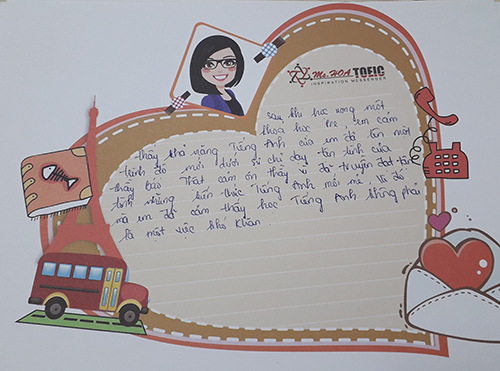 Ms.HOA TOEIC
INSPIRATION MESSENGER
sau khi học xong một
khóa học Pre em cảm
thấy khả năng Tiếng Anh của em đã lên một
trình độ mới dưới sự chỉ dạy tận tình của
thầy Bảo Thật cảm ơn thầy vì đã truyền đạt tận
tình những kiến thức Tiếng Anh mới mẻ Vì đó
mà em đã cảm thấy học Tiếng Anh không phải
là một việc khó khăn.